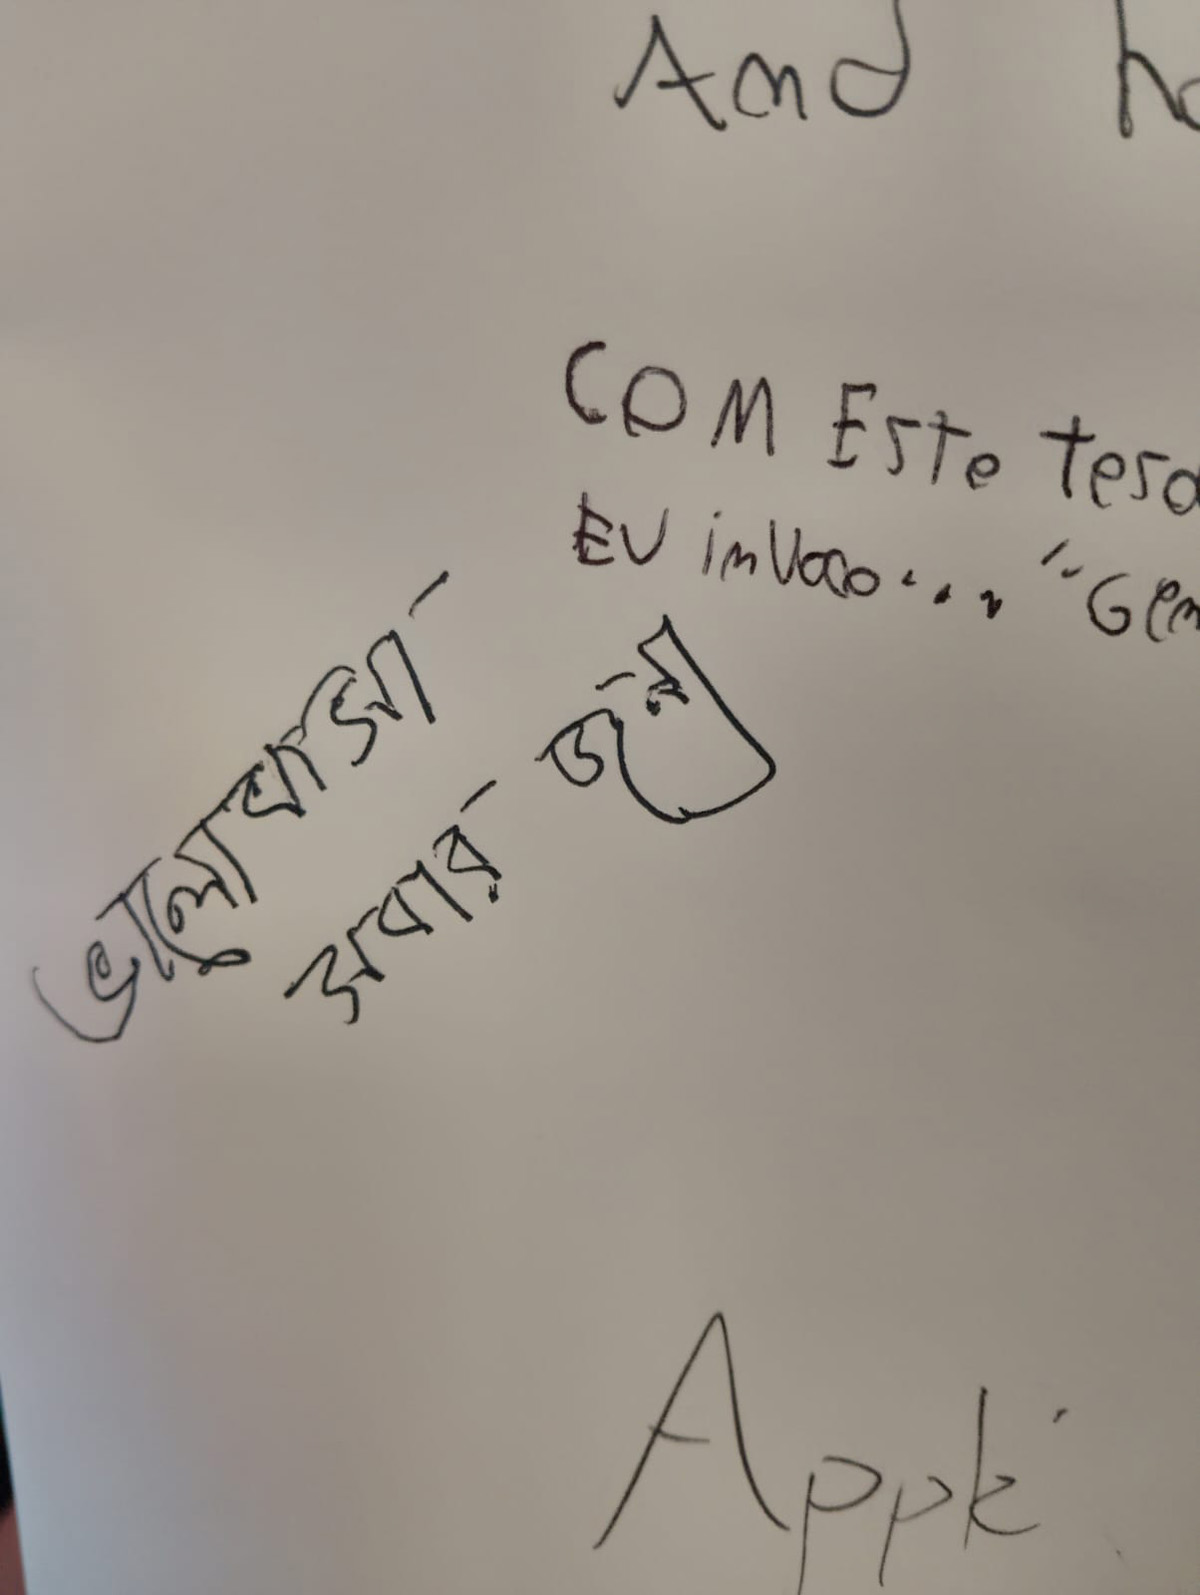 And
COM Este
EU invoco...
ভালোবাসা
সবার জন্য
Appk